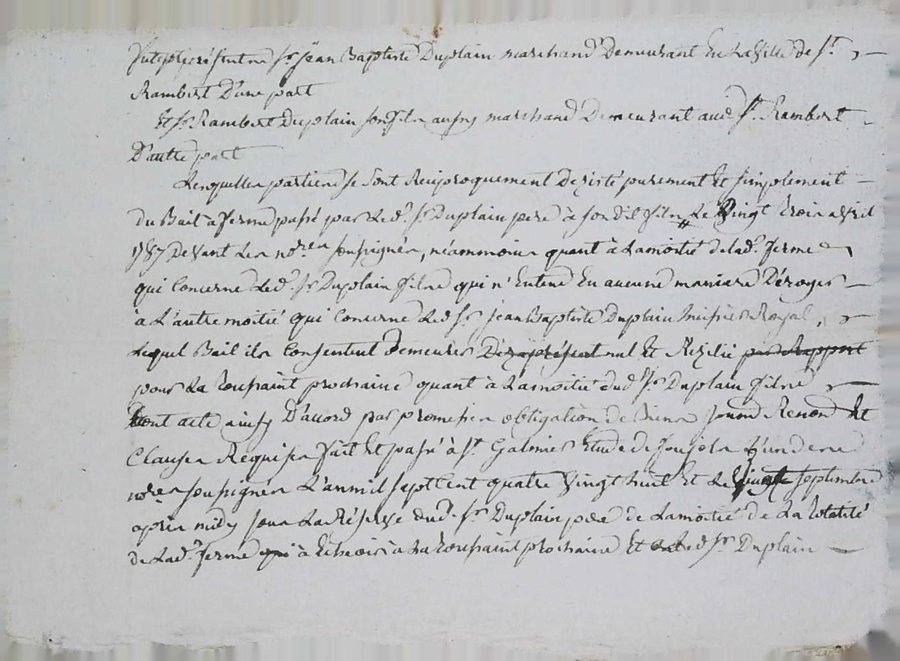 Jean Baptiste Duplain marchand Demeurant En la Ville de St.
Rambert D'une part
Et Sr. Rambert Duplain son fils aussy marchand Demeurant aud. St. Rambert
D'autre part
Lesquelles parties se sont Reciproquement Dezisté purement Et simplement
du Bail a ferme passé par Led. Sr. Duplain pere à son dit fils Le Vingt trois avril
1787 Devant Les nores. soussignés, néammoins quant à La moitié de lad. ferme
qui Concerne Led. Sr. Duplain fils qui n'Entend En aucune maniere Déroger
à L'autre moitié qui Concerne Led. Sr. Jean Baptiste Duplain huissier Royal,
Lequel Bail ils Consentent demeurer nul Et Rezilié par Rapport
pour La toussaint prochaine quant à La moitié dud. Sr. Duplain fils
Dont acte ainsy D'accord par promesses obligation de biens Renond. Et
Clauses Requises fait Et passé à St. Galmier Etude de L'un des
nores. soussignés L'an mil sept Cent quatre Vingt huit Et Le septembre
après midy sous La Réserve dud. Sr. Duplain pere de La moitié de La totalité
de Lad. ferme à Echeoir à La toussaint prochaine Et Led. Sr. Duplain